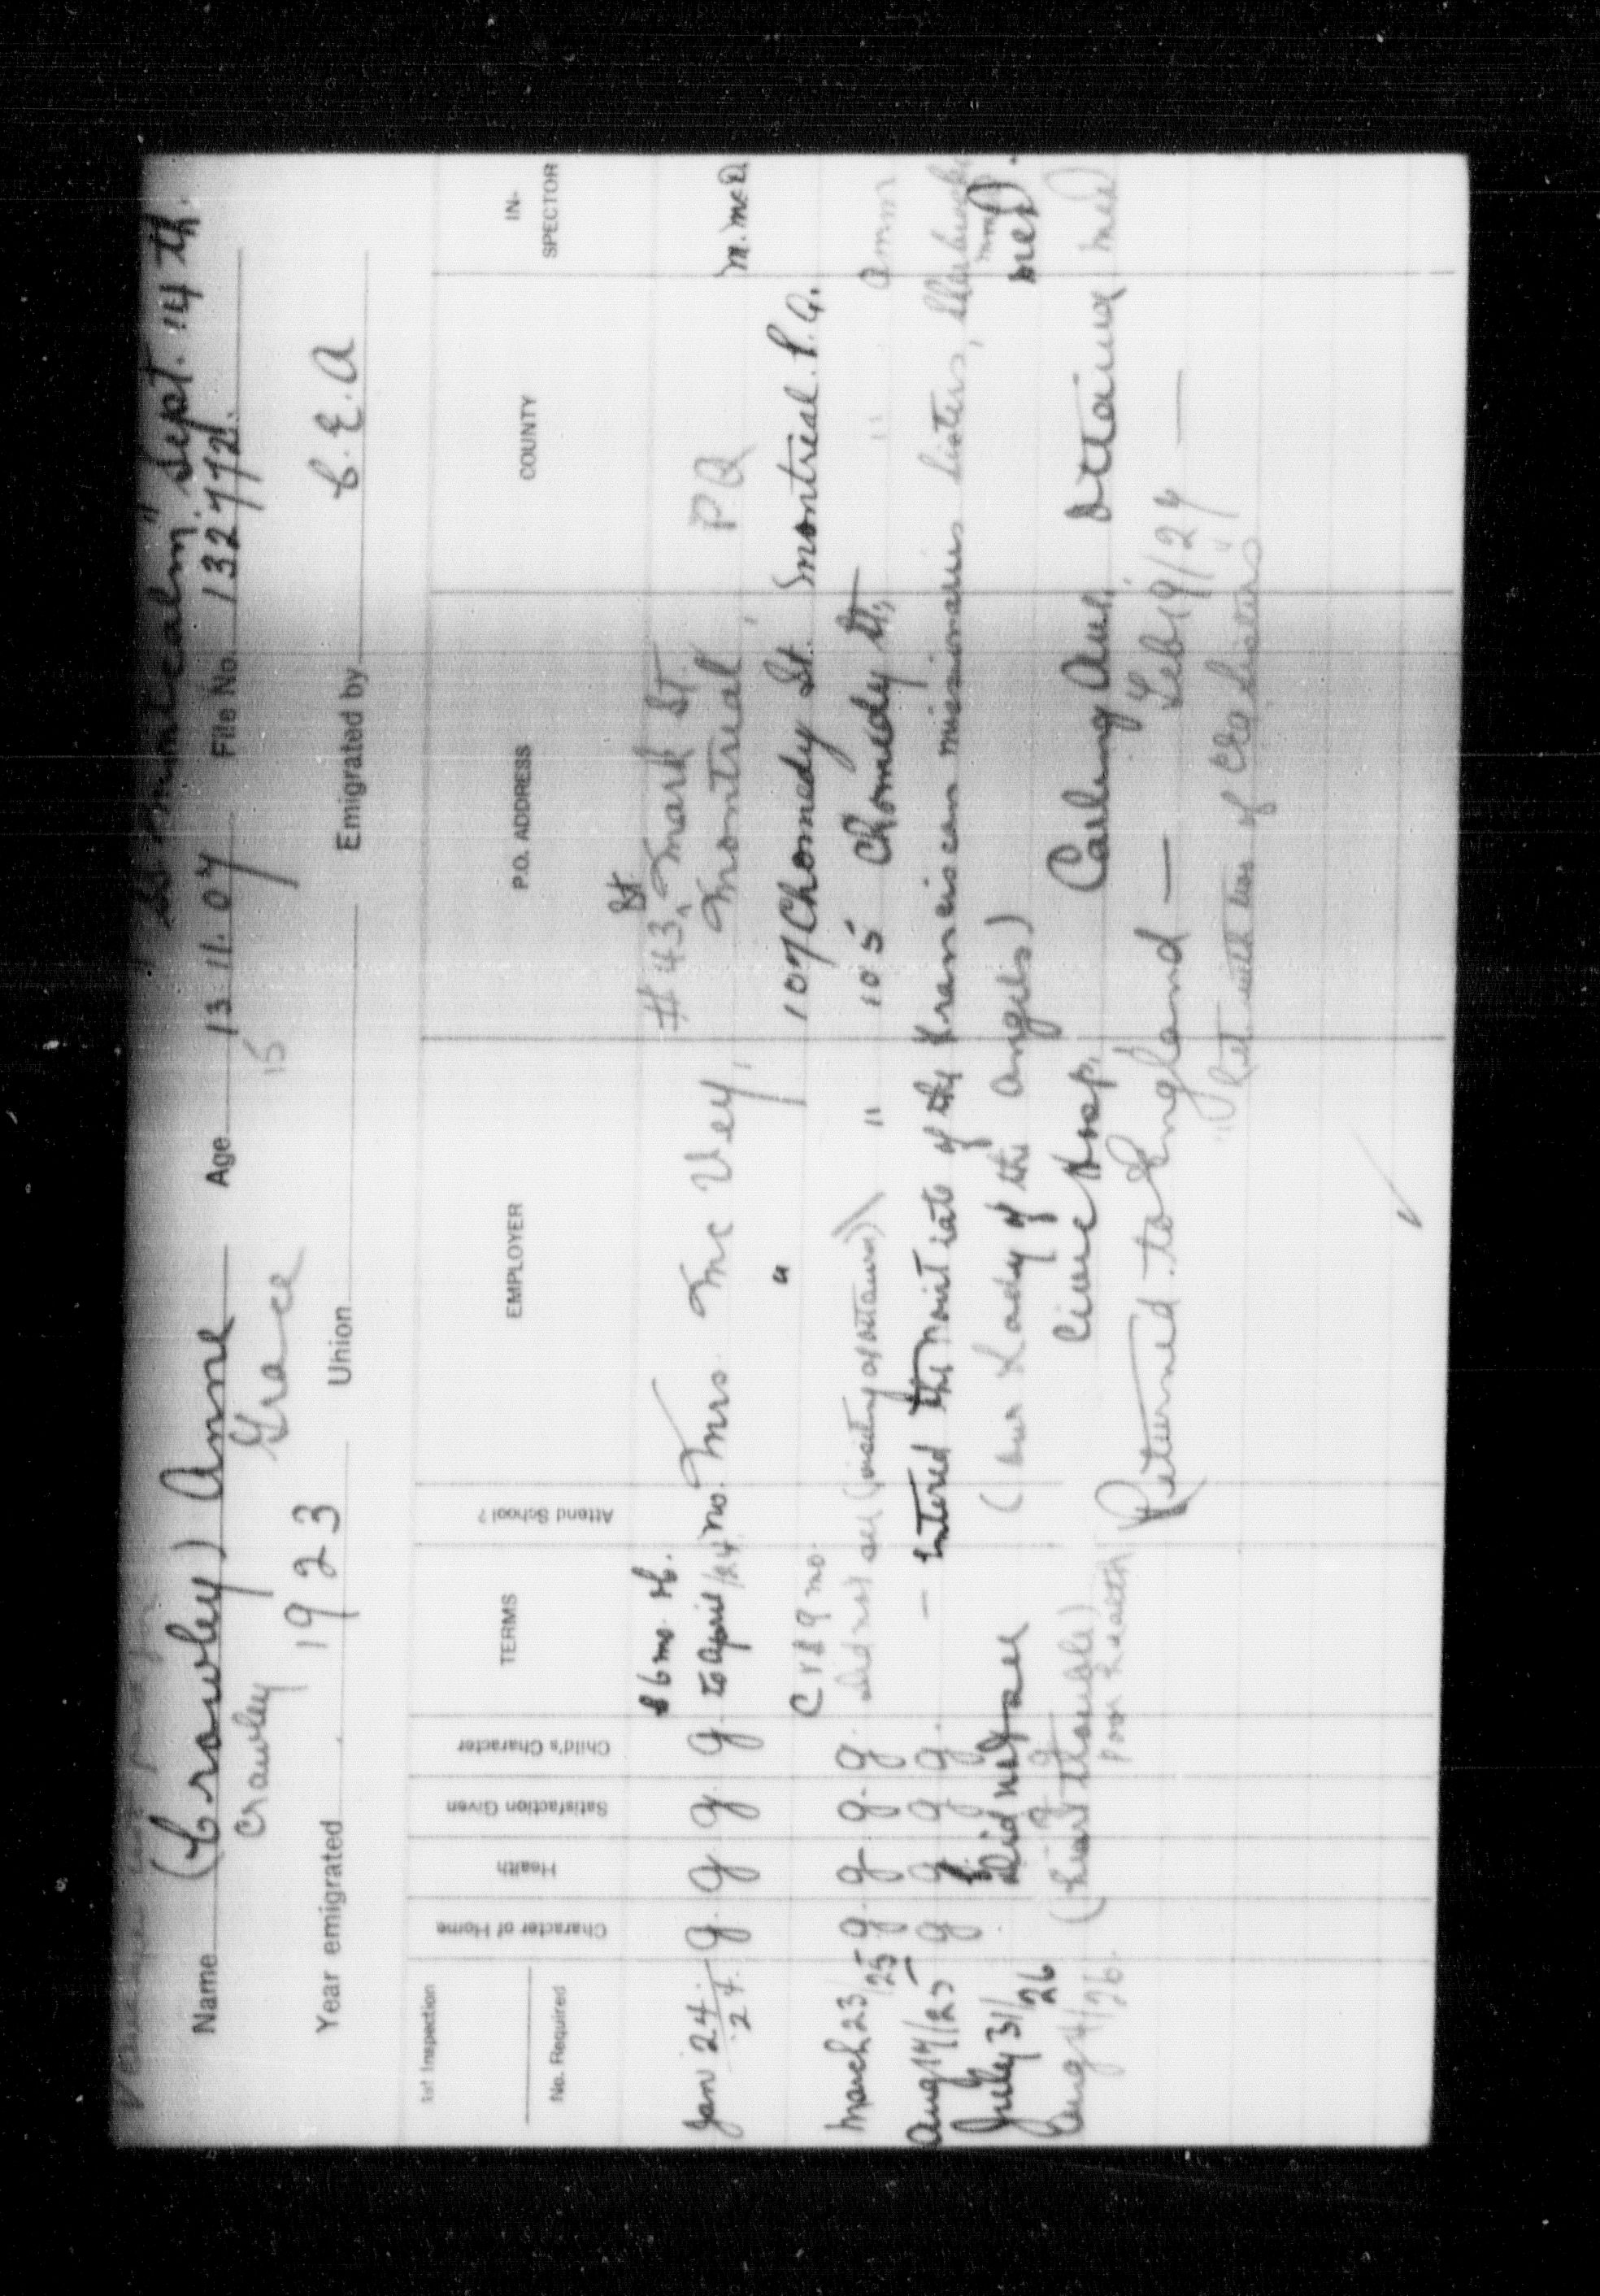 Montcalm" Sept. 14th.
Name (Crowley) Anne Age 13 11. 07 File No. 132772.
Crawley Grace 15
Year emigrated 1923 Union Emigrated by C.E.A
1st Inspection
No. Required
Character of Home
Health
Satisfaction Given
Child's Character
TERMS
Attend School?
EMPLOYER
P.O. ADDRESS
COUNTY
IN-SPECTOR
$6 mo. St.
Jan 24/24. g. g g g. to April/24 no. Mrs. McVey, #43 Mark St. Montreal, PQ M. McD
C r $9 mo. " 107 Chomedy St. Montreal. P.Q.
March 23/25 g. g. g. g. did not see (visiting at Ottawa) " 105 Chomedy St. " amm
Aug 17/25 g g g g. — Entered the Novitiate of the Franciscan missionaries Sisters,
July 31/26 Did not see (Our Lady of the Angels) McD.
Aug 4/26. (heart trouble) g g Civic Hosp. Carling Ave. Ottawa McD
Poor health Returned to England — Feb 19/27 —
"Ret. with of Sisters"